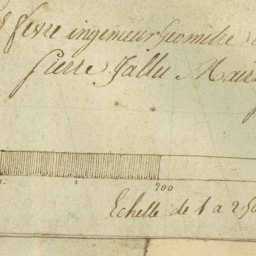 fevre ingenieur Geometre
Pierre Jallu Mair
700
Echelle de 1 a 250